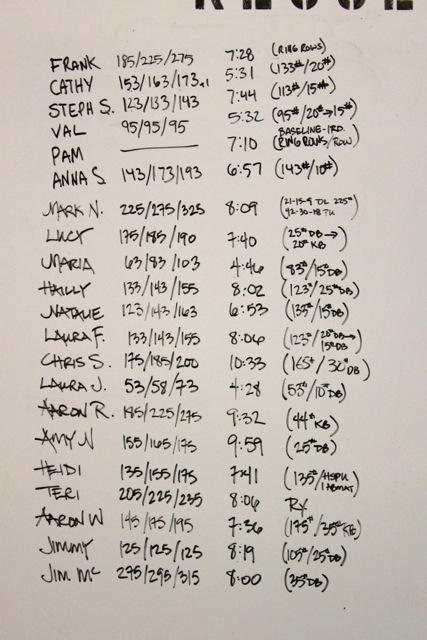 FRANK 185/225/275 7:28 (RING ROWS)
CATHY 153/163/173x1 5:31 (133#/20#)
STEPH S. 123/133/143 7:44 (113#/15#)
VAL 95/95/95 5:32 (95#/20#→15#)
PAM —— 7:10 BASELINE-1RD. (RING ROWS/ROW)
ANNA S 143/173/193 6:57 (143#/10#)
MARK N. 225/275/325 8:09 (21-15-9 DL 225# 42-30-18 TU)
LUCY 175/185/190 7:40 (25# DB → 20# KB)
MARIA 63/83/103 4:46 (83#/15# DB)
HAILLY 133/143/155 8:02 (123#/25# DB)
NATALIE 123/143/163 6:53 (135#/15# DB)
LAURA F. 133/143/155 8:06 (123#/20# DB→ 15# DB)
CHRIS S. 175/185/200 10:33 (165#/30# DB)
LAURA J. 53/58/73 4:28 (53#/10# DB)
AARON R. 195/225/275 9:32 (44# KB)
AMY N 155/165/175 9:59 (25# DB)
HEIDI 135/155/175 7:41 (135#/HSPU 1 ABMAT)
TERI 205/225/235 8:06 RX
AARON W 145/175/195 7:36 (175#/35# KB)
JIMMY 125/125/125 8:19 (105#/25# DB)
JIM MC 275/295/315 8:00 (35# DB)